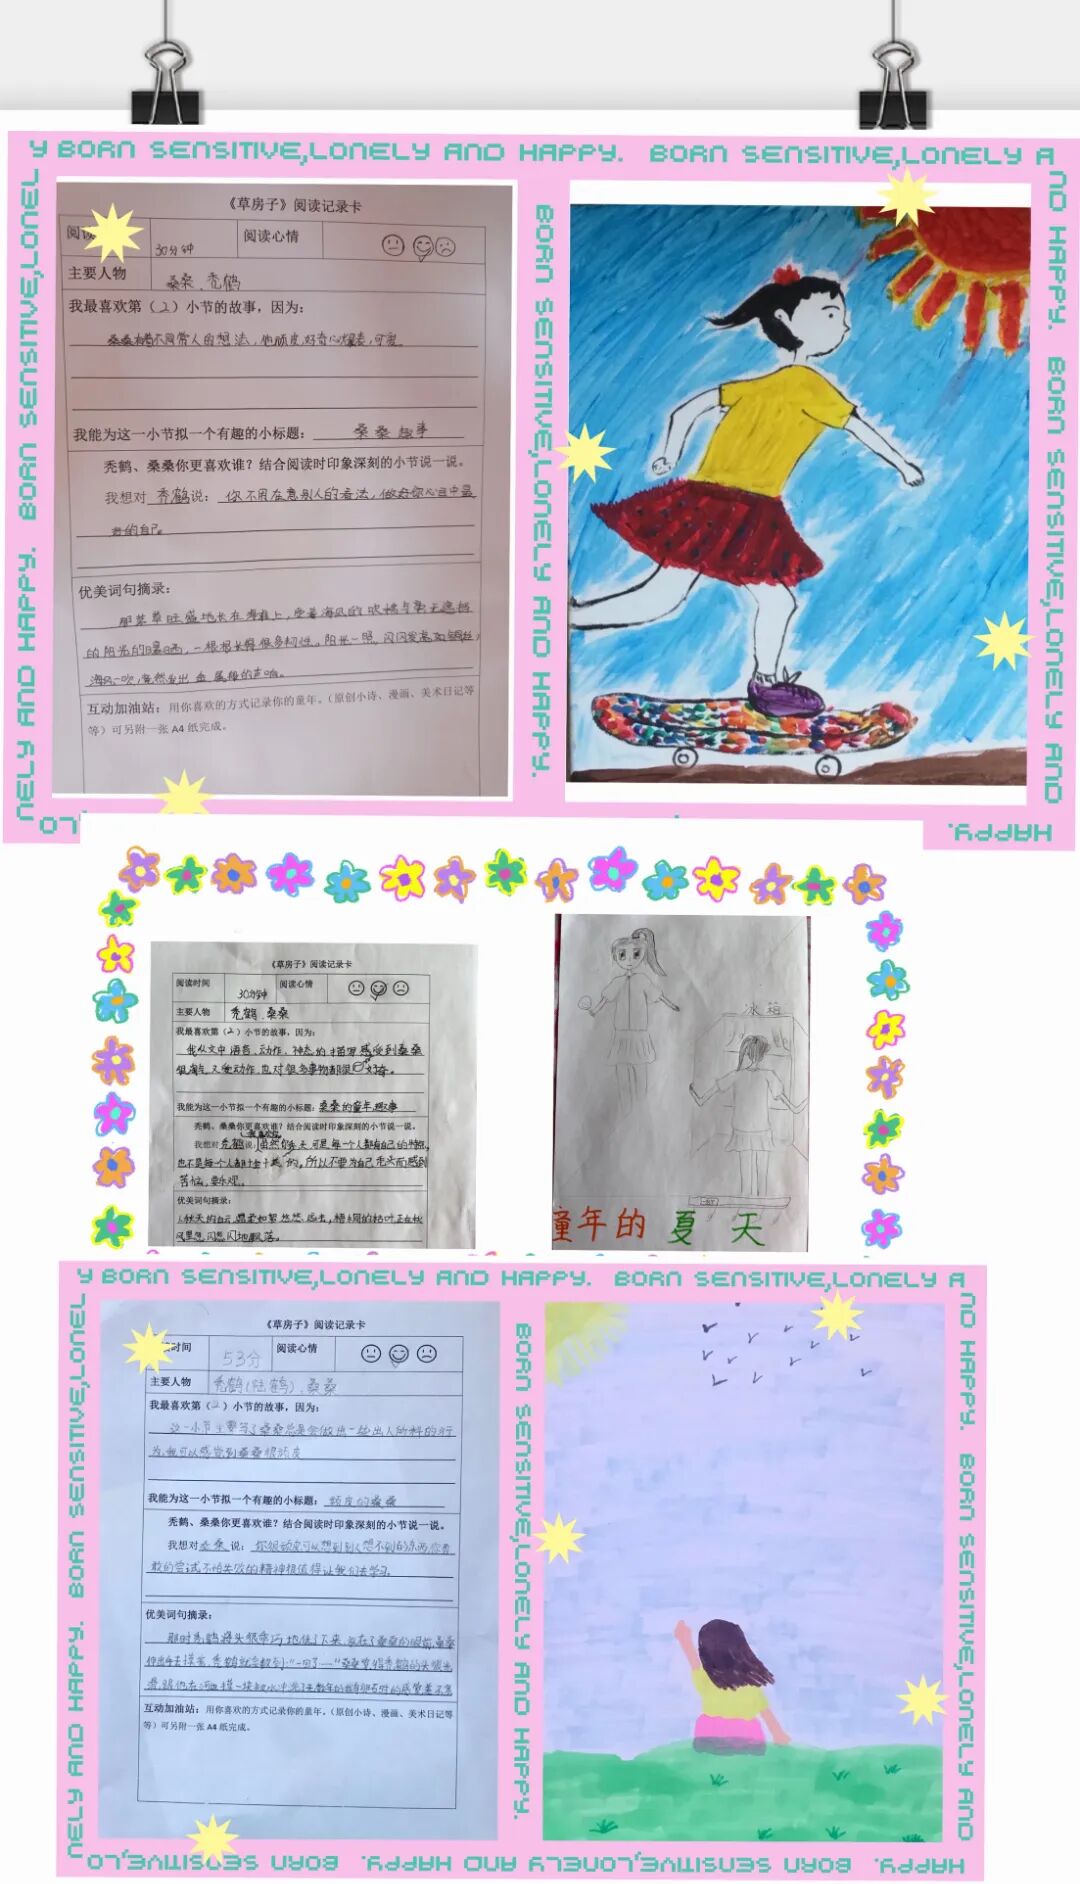 Y BORN SENSITIVE,LONELY AND HAPPY. BORN SENSITIVE,LONELY A
ND HAPPY. BORN SENSITIVE,LONELY AND
HAPPY.
NELY AND HAPPY. BORN SENSITIVE,LONEL
LO
BORN SENSITIVE,LONELY AND HAPPY.
《草房子》阅读记录卡
阅读
30分钟
阅读心情
主要人物
桑桑、秃鹤
我最喜欢第(2)小节的故事,因为:
桑桑有着不同常人的想法,他顽皮,好奇心爆表,可爱
我能为这一小节拟一个有趣的小标题: 桑桑趣事
秃鹤、桑桑你更喜欢谁?结合阅读时印象深刻的小节说一说。
我想对 秃鹤 说: 你不用在意别人的看法,做好你心目中最
好的自己。
优美词句摘录:
那茅草旺盛地长在海滩上,受着海风的吹拂与毫无遮挡
的阳光的曝晒,一根根长得很多韧性。阳光一照,闪闪发亮如铜丝,
海风一吹,竟然发出金属般的声响。
互动加油站:用你喜欢的方式记录你的童年。(原创小诗、漫画、美术日记等
等)可另附一张 A4 纸完成。
《草房子》阅读记录卡
阅读时间
30分钟
阅读心情
主要人物
秃鹤、桑桑
我最喜欢第(2)小节的故事,因为:
我从文中语言、动作、神态的描写感受到桑桑
又爱动作,也对很多事物都很好奇。
我能为这一小节拟一个有趣的小标题: 桑桑的童年趣事
秃鹤、桑桑你更喜欢谁?结合阅读时印象深刻的小节说一说。
我想对 秃鹤 说: 虽然你秃 可是每一个人都有自己的特点,
也不是每个人都十全十美的,所以不要为自己秃头而感到
苦恼,要乐观。
优美词句摘录:
秋天的白云,温柔如絮,悠悠远去,梧桐的枯叶正在秋
风里忽闪忽闪地飘落。
冰箱
童年的夏天
Y BORN SENSITIVE,LONELY AND HAPPY. BORN SENSITIVE,LONELY A
ND HAPPY. BORN SENSITIVE,LONELY AND
HAPPY. BORN SENSITIVE,LONELY AND HAPPY. BORN SENSITIVE,LO
NELY AND HAPPY. BORN SENSITIVE,LONEL
BORN SENSITIVE,LONELY AND HAPPY.
《草房子》阅读记录卡
时间
53分
阅读心情
主要人物
秃鹤(陆鹤)、桑桑
我最喜欢第(2)小节的故事,因为:
这一小节主要写了桑桑总是会做出一些出人所料的行
为,我可以感觉到桑桑很顽皮
我能为这一小节拟一个有趣的小标题: 顽皮的桑桑
秃鹤、桑桑你更喜欢谁?结合阅读时印象深刻的小节说一说。
我想对 桑桑 说: 你很顽皮可以想到别人想不到的东西,你勇
敢的尝试,不怕失败的精神很值得让我们去学习。
优美词句摘录:
那时秃鹤将头很乖巧地低了下来,放在了桑桑的眼前,桑桑
伸出手去摸着,秃鹤就会数到:“一回了……”桑桑觉得秃鹤的头很光
互动加油站:用你喜欢的方式记录你的童年。(原创小诗、漫画、美术日记等
等)可另附一张 A4 纸完成。